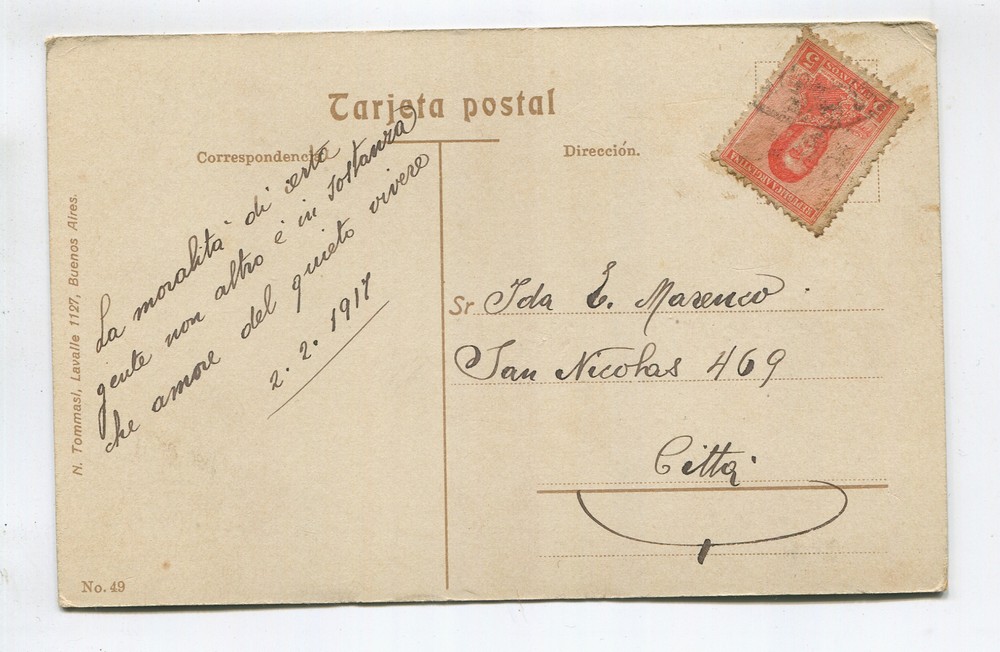 Tarjeta postal
Correspondencia.
Dirección.
La moralità di certa
gente non altro è in sostanza
che amore del quieto vivere
2. 2. 1917
Sr Ida E. Marenco
San Nicolas 469
Città
N. Tommasi, Lavalle 1127, Buenos Aires.
No. 49
REPUBLICA ARGENTINA
5 CENTAVOS 5